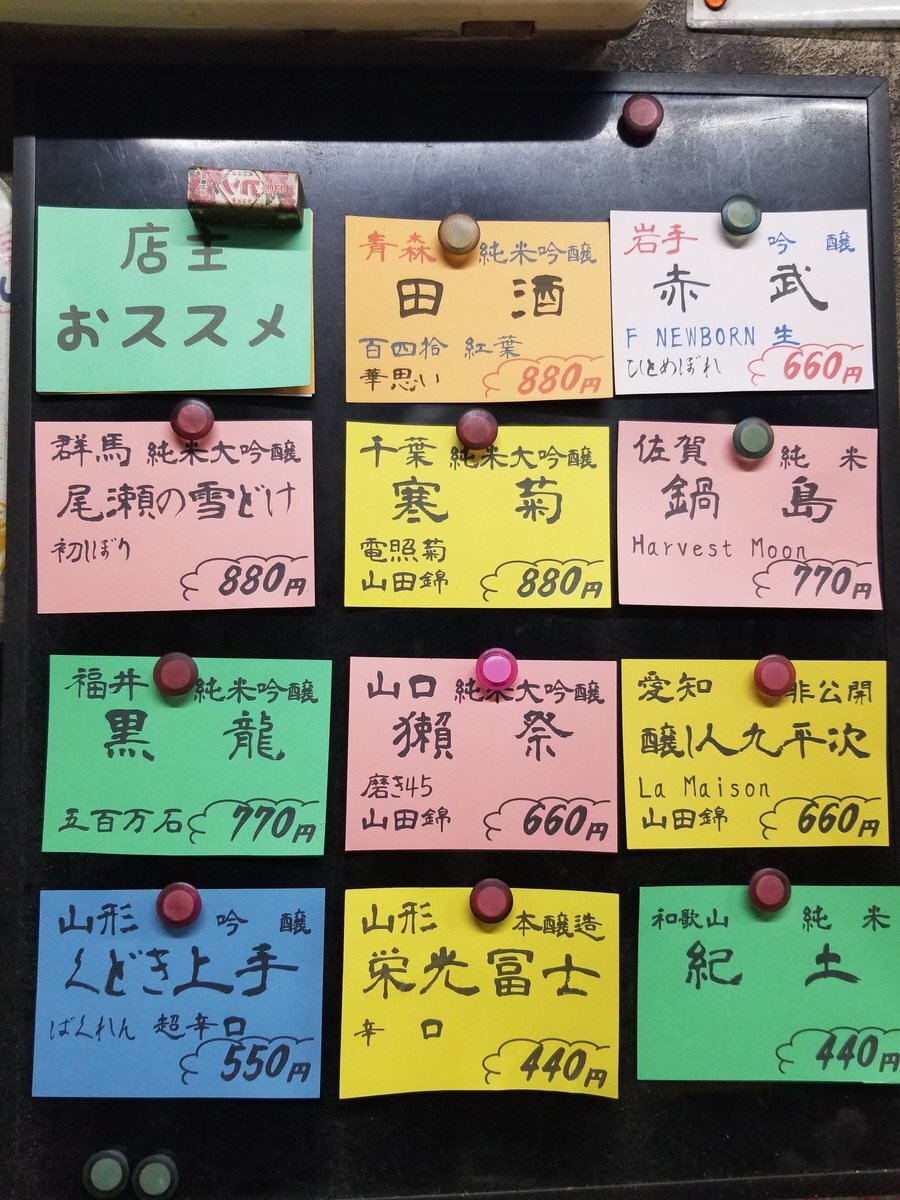 店主
おススメ
青森 純米吟醸
田酒
百四拾 紅葉
華思い
880円
岩手 吟醸
赤武
F NEWBORN 生
ひとめぼれ
660円
群馬 純米大吟醸
尾瀬の雪どけ
初しぼり
880円
千葉 純米大吟醸
寒菊
電照菊
山田錦
880円
佐賀 純米
鍋島
Harvest Moon
770円
福井 純米吟醸
黒龍
五百万石
770円
山口 純米大吟醸
獺祭
磨き45
山田錦
660円
愛知 非公開
醸し人九平次
La Maison
山田錦
660円
山形 吟醸
くどき上手
ばくれん 超辛口
550円
山形 本醸造
栄光冨士
辛口
440円
和歌山 純米
紀土
440円